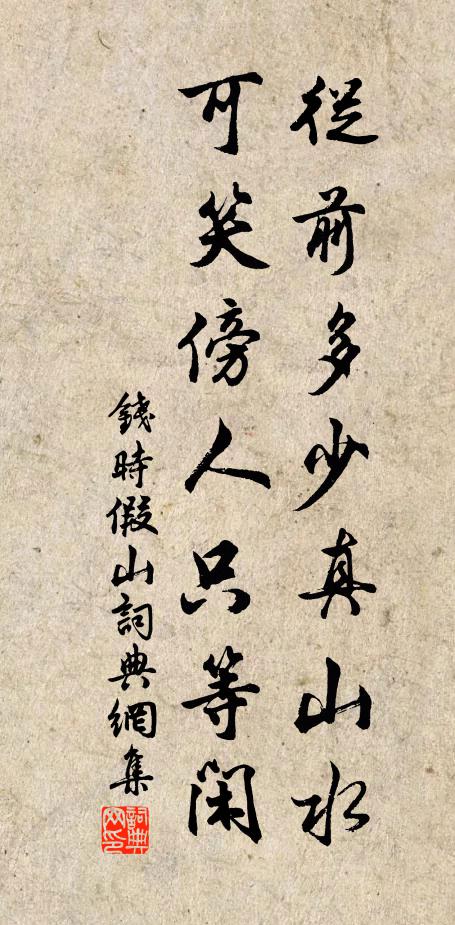 從前多少真山水
可笑傍人只等閑
錢時假山詞典網集
詞典網印